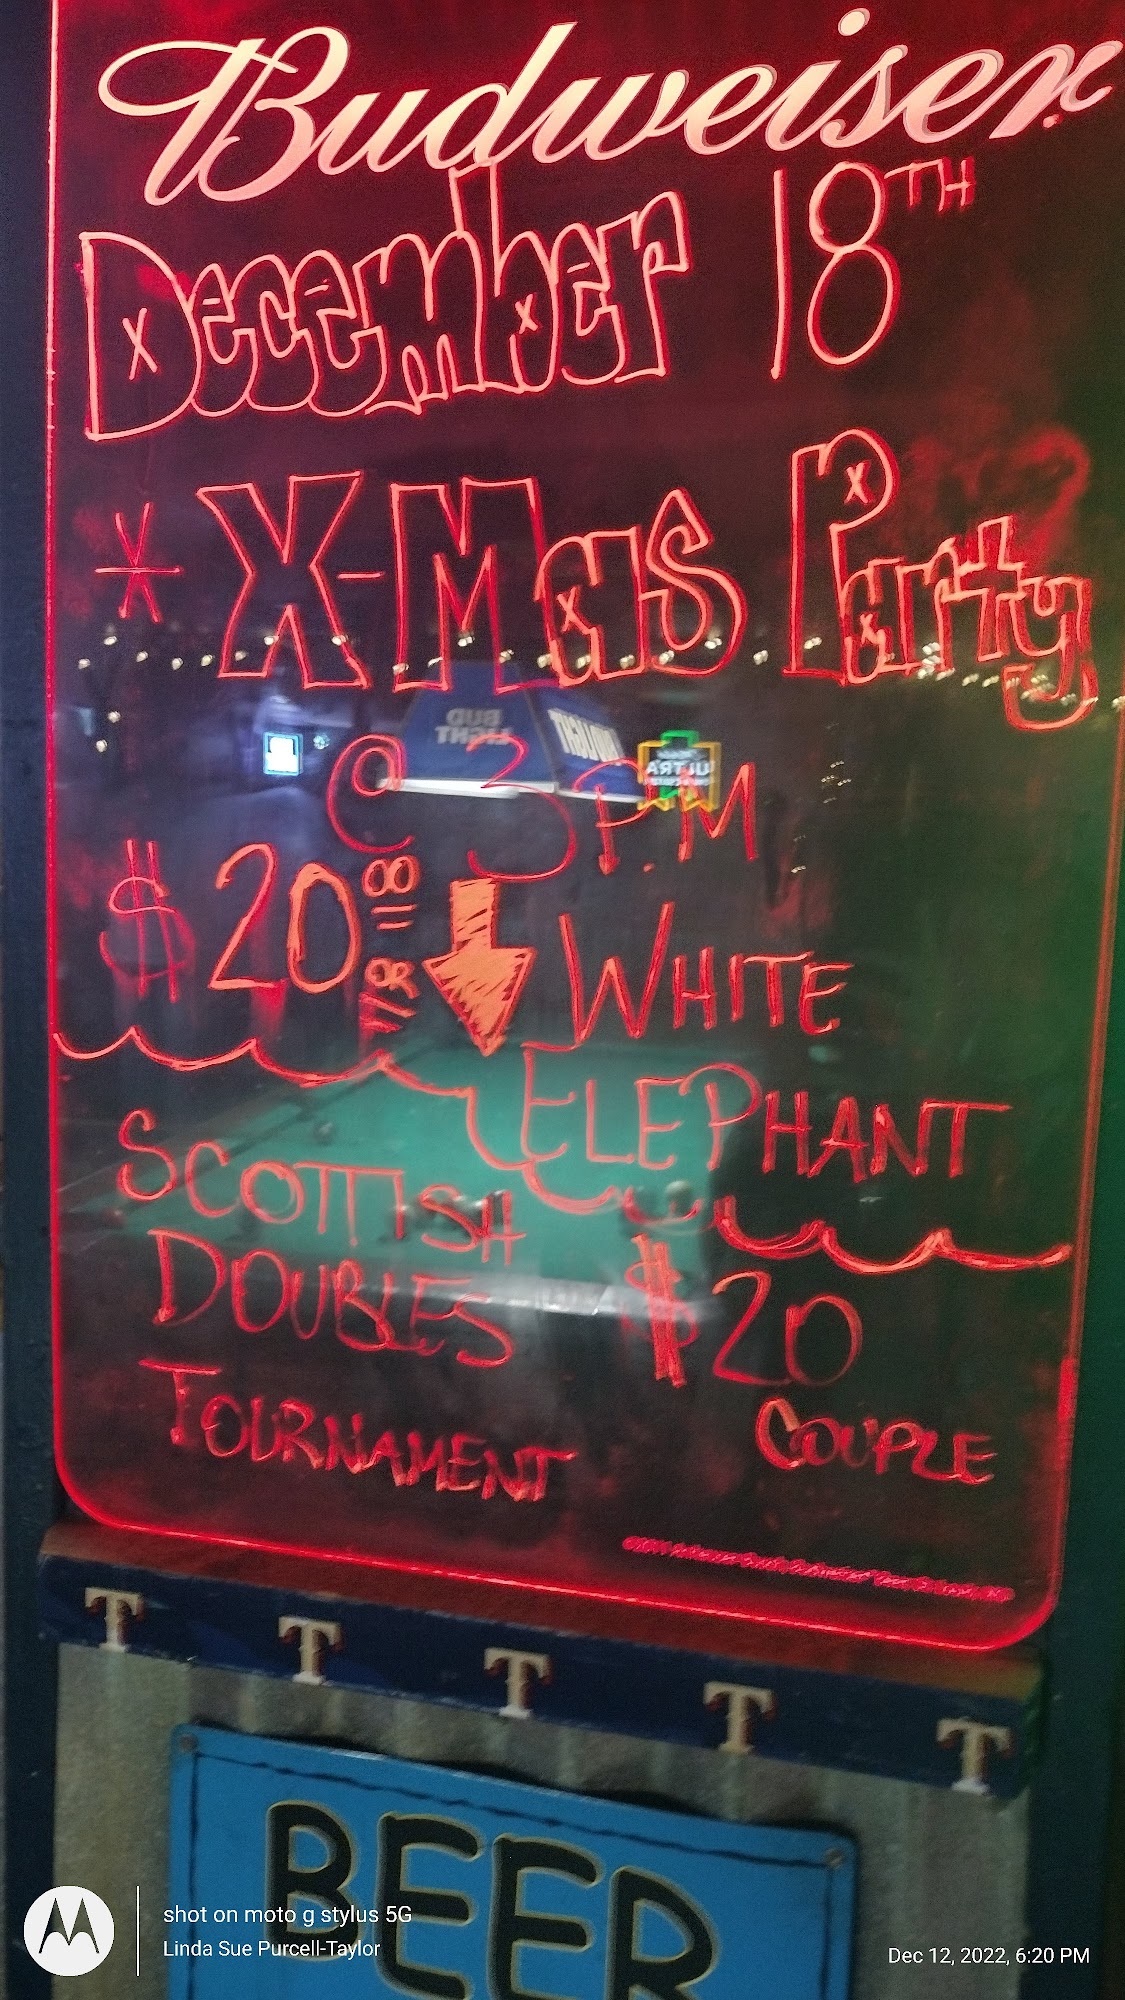 Budweiser
December 18TH
* X-Mas Party
@ 3 P.M
$20
WHITE
ELEPHANT
SCOTTISH
DOUBLES
TOURNAMENT
$20
COUPLE
BUD
LIGHT
BUD LIGHT
ULTRA
T T T T T
BEER
shot on moto g stylus 5G
Linda Sue Purcell-Taylor
Dec 12, 2022, 6:20 PM